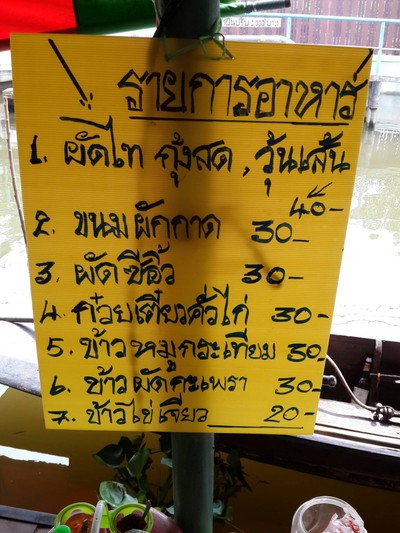 รายการอาหาร
1. ผัดไท กุ้งสด, วุ้นเส้น
40-
2. ขนมผักกาด 30-
3. ผัดซีอิ้ว 30-
4. ก๋วยเตี๋ยวคั่วไก่ 30-
5. ข้าวหมูกระเทียม 30-
6. ข้าวผัดกะเพรา 30-
7. ข้าวไข่เจียว 20-